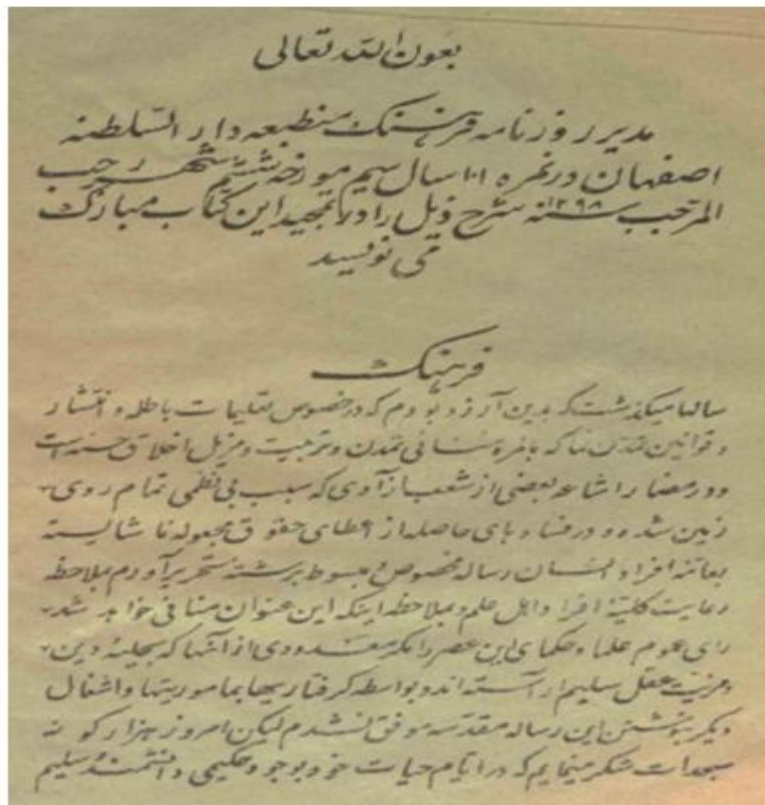 بعون الله تعالی
مدیر روزنامه فرهنگ منطبعه دار السلطنه
اصفهان در نمره ۱۰۱ سال سیم مورخه ششم شهر رجب
المرجب سنه ۱۲۹۸ شرح ذیل را در تمجید این کتاب مبارک
می نویسد
فرهنگ
سالها میگذشت که بدین آرزو بودم که در خصوص تعلیمات باطله و انتشار
و قوانین تمدن نما که بالمره منافی تمدن و تربیت و مزیل اخلاق حسنه است
و در مضار اشاعه بعضی از شعب آزادی که سبب بی نظمی تمام روی
زمین شده و در فساد های حاصله از اعطای حقوق مجعوله ناشایسته
بعامه افراد انسان رساله مخصوص مبسوط برشته تحریر آورم بملاحظه
رعایت کلیة افراد اهل علم و بملاحظه اینکه این عنوان منافی خواهد شد
رای عموم علما و حکمای این عصر را مگر معدودی از آنها که بحلیه دین
و مزیت عقل سلیم آراسته اند و بواسطه گرفتاریها بماموریتها و اشغال
دیگر بنوشتن این رساله مقدسه موفق نشدم لیکن امروز هزار گونه
سجدات شکر مینمایم که در ایام حیات خود بوجود حکیمی دانشمند سلیم